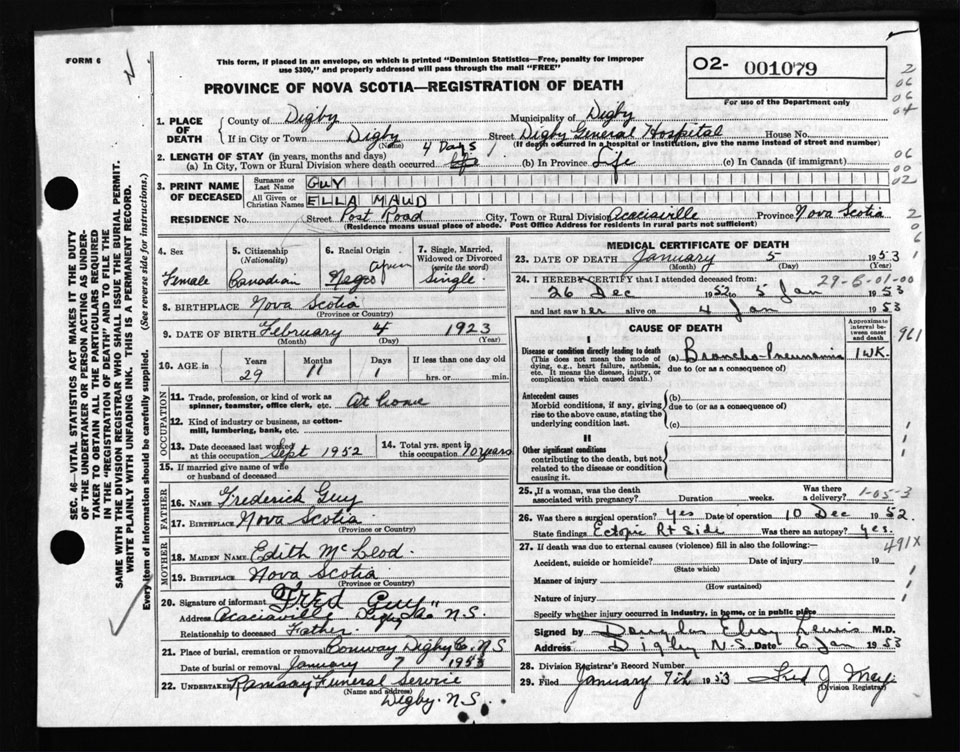 FORM 6
This form, if placed in an envelope, on which is printed "Dominion Statistics—Free, penalty for improper
use $300," and properly addressed will pass through the mail "FREE"
PROVINCE OF NOVA SCOTIA—REGISTRATION OF DEATH
O2- 001079
For use of the Department only
2 06 06 04
06 00 02
2 06
1. PLACE OF DEATH
County of Digby
Municipality of Digby
If in City or Town Digby (Name)
Street Digby General Hospital House No.
(If death occurred in a hospital or institution, give the name instead of street and number)
2. LENGTH OF STAY (in years, months and days)
(a) In City, Town or Rural Division where death occurred 4 Days
(b) In Province Life
(c) In Canada (if immigrant)
3. PRINT NAME OF DECEASED
Surname or Last Name GUY
All Given or Christian Names ELLA MAUD
RESIDENCE No. Street Post Road City, Town or Rural Division Acaciaville Province Nova Scotia
(Residence means usual place of abode. Post Office Address for residents in rural parts not sufficient)
4. Sex
Female
5. Citizenship (Nationality)
Canadian
6. Racial Origin
Negro
7. Single, Married, Widowed or Divorced (write the word)
Single
8. BIRTHPLACE Nova Scotia
(Province or Country)
9. DATE OF BIRTH February 4 1923
(Month) (Day) (Year)
10. AGE in
Years 29
Months 11
Days 1
If less than one day old
hrs. or min.
OCCUPATION
11. Trade, profession, or kind of work as spinner, teamster, office clerk, etc. At home
12. Kind of industry or business, as cotton-mill, lumbering, bank, etc.
13. Date deceased last worked at this occupation Sept 1952
14. Total yrs. spent in this occupation 10 years
15. If married give name of wife or husband of deceased
FATHER
16. NAME Frederick Guy
17. BIRTHPLACE Nova Scotia
(Province or Country)
MOTHER
18. MAIDEN NAME Edith McLeod
19. BIRTHPLACE Nova Scotia
(Province or Country)
20. Signature of informant Fred Guy
Address Acaciaville Digby Co N.S.
Relationship to deceased Father
21. Place of burial, cremation or removal Conway Digby Co. N.S
Date of burial or removal January 7 1953
22. UNDERTAKER Ramsay Funeral Service
(Name and address)
Digby. N.S.
MEDICAL CERTIFICATE OF DEATH
23. DATE OF DEATH January 5 1953
(Month) (Day) (Year)
24. I HEREBY CERTIFY that I attended deceased from: 29-6-01-00
26 Dec 1952 to 5 Jan 1953
and last saw her alive on 4 Jan 1953
CAUSE OF DEATH
Approximate interval between onset and death
I
Disease or condition directly leading to death
(This does not mean the mode of dying, e.g., heart failure, asthenia, etc. It means the disease, injury, or complication which caused death.)
(a) Broncho-Pneumonia 1 WK.
961
due to (or as a consequence of)
Antecedent causes
Morbid conditions, if any, giving rise to the above cause, stating the underlying condition last.
(b)
due to (or as a consequence of)
(c)
II
Other significant conditions
contributing to the death, but not related to the disease or condition causing it.
25. If a woman, was the death associated with pregnancy? Duration weeks. Was there a delivery? 1-05-3
26. Was there a surgical operation? Yes Date of operation 10 Dec 1952.
State findings Ectopic Rt Side Was there an autopsy? yes.
491X
27. If death was due to external causes (violence) fill in also the following:—
Accident, suicide or homicide? Date of injury 19
(State which)
Manner of injury
(How sustained)
Nature of injury
Specify whether injury occurred in industry, in home, or in public place
Signed by Douglas Elroy Lewis M.D.
Address Digby N.S. Date 6 Jan 1953
28. Division Registrar's Record Number
29. Filed January 7th 1953 Fred J.
(Division Registrar)
SEC. 46—VITAL STATISTICS ACT MAKES IT THE DUTY
OF THE UNDERTAKER OR PERSON ACTING AS UNDER-
TAKER TO OBTAIN ALL THE PARTICULARS REQUIRED
IN THE "REGISTRATION OF DEATH" AND TO FILE THE
SAME WITH THE DIVISION REGISTRAR WHO SHALL ISSUE THE BURIAL PERMIT.
WRITE PLAINLY WITH UNFADING INK. THIS IS A PERMANENT RECORD.
Every item of information should be carefully supplied. (See reverse side for instructions.)